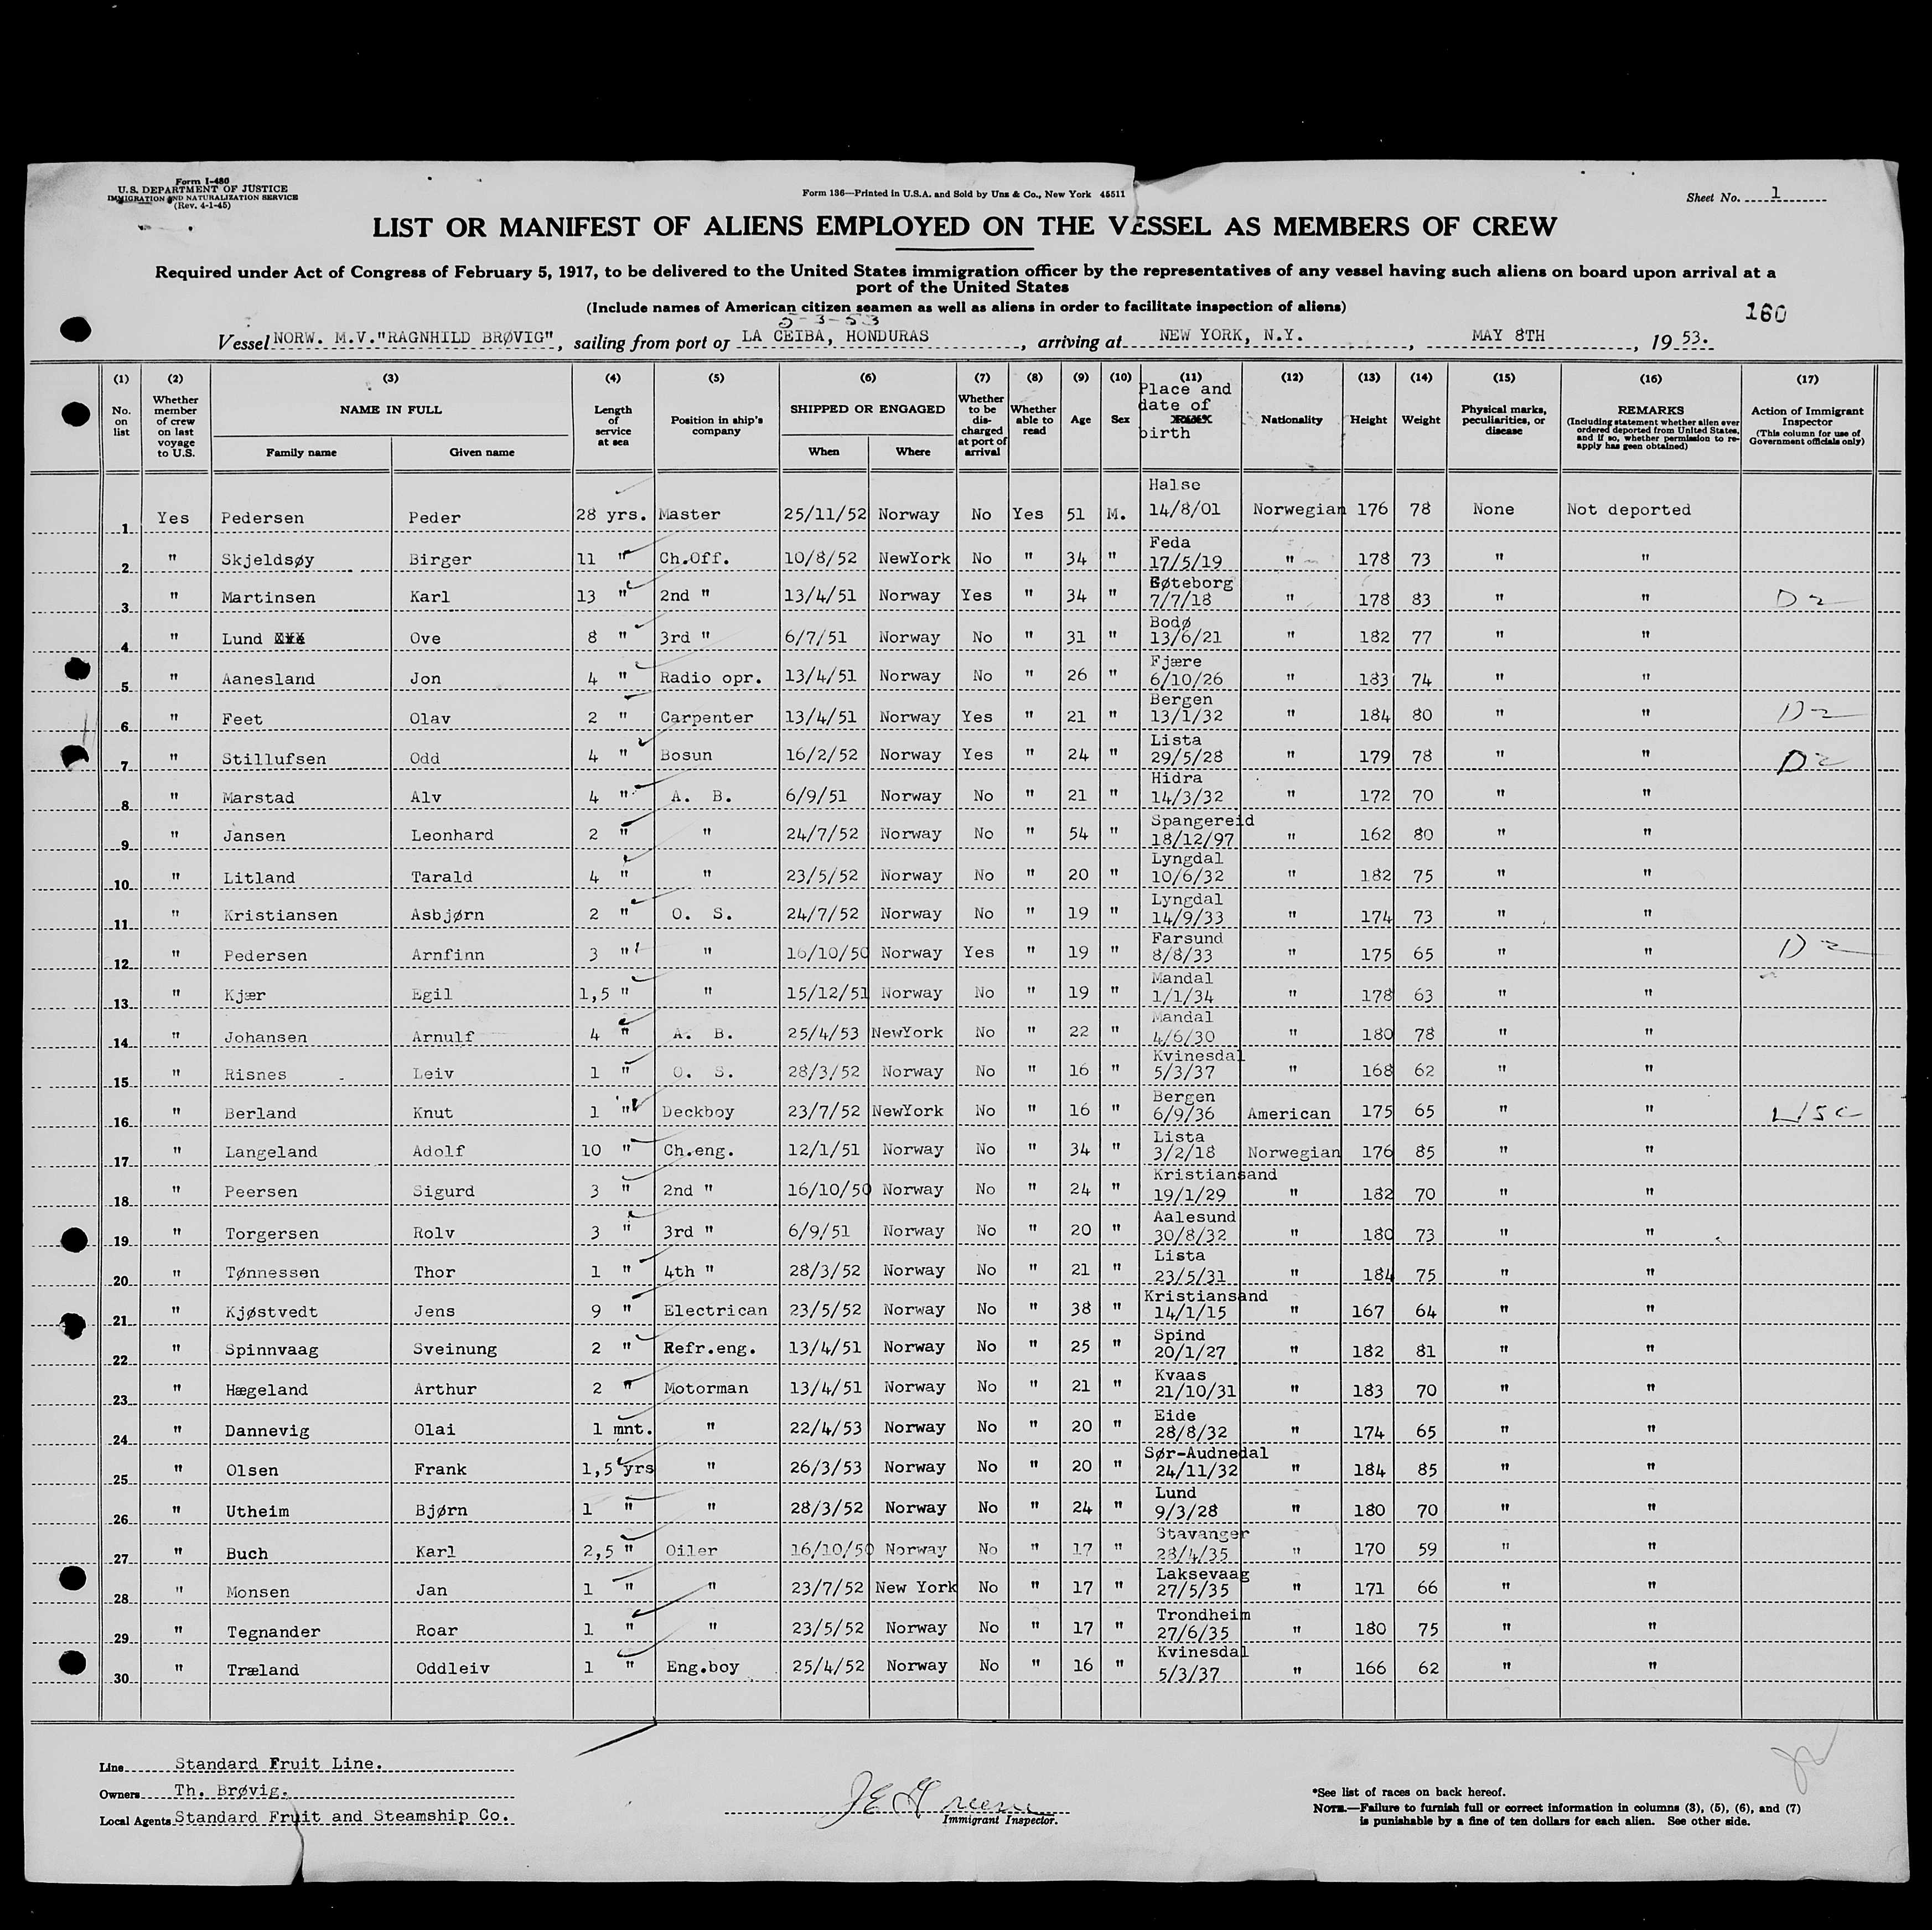 Form I-480
U.S. DEPARTMENT OF JUSTICE
IMMIGRATION AND NATURALIZATION SERVICE
(Rev. 4-1-45)
Form 136—Printed in U.S.A. and Sold by Unz & Co., New York 45511
Sheet No. 1
LIST OR MANIFEST OF ALIENS EMPLOYED ON THE VESSEL AS MEMBERS OF CREW
Required under Act of Congress of February 5, 1917, to be delivered to the United States immigration officer by the representatives of any vessel having such aliens on board upon arrival at a
port of the United States
(Include names of American citizen seamen as well as aliens in order to facilitate inspection of aliens)
160
5-3-53
Vessel NORW. M.V."RAGNHILD BRØVIG", sailing from port of LA CEIBA, HONDURAS, arriving at NEW YORK, N.Y., MAY 8TH, 19 53.
(1) No. on list
(2) Whether member of crew on last voyage to U.S.
(3) NAME IN FULL Family name Given name
(4) Length of service at sea
(5) Position in ship's company
(6) SHIPPED OR ENGAGED When Where
(7) Whether to be discharged at port of arrival
(8) Whether able to read
(9) Age
(10) Sex
(11) Place and date of birth
(12) Nationality
(13) Height
(14) Weight
(15) Physical marks, peculiarities, or disease
(16) REMARKS (Including statement whether alien ever ordered deported from United States, and if so, whether permission to re-apply has geen obtained)
(17) Action of Immigrant Inspector (This column for use of Government officials only)
1 Yes Pedersen Peder 28 yrs. Master 25/11/52 Norway No Yes 51 M. Halse 14/8/01 Norwegian 176 78 None Not deported
2 " Skjeldsøy Birger 11 " Ch.Off. 10/8/52 NewYork No " 34 " Feda 17/5/19 " 178 73 " "
3 " Martinsen Karl 13 " 2nd " 13/4/51 Norway Yes " 34 " Gøteborg 7/7/18 " 178 83 " " D2
4 " Lund Ove 8 " 3rd " 6/7/51 Norway No " 31 " Bodø 13/6/21 " 182 77 " "
5 " Aanesland Jon 4 " Radio opr. 13/4/51 Norway No " 26 " Fjære 6/10/26 " 183 74 " "
6 " Feet Olav 2 " Carpenter 13/4/51 Norway Yes " 21 " Bergen 13/1/32 " 184 80 " " D2
7 " Stillufsen Odd 4 " Bosun 16/2/52 Norway Yes " 24 " Lista 29/5/28 " 179 78 " " D2
8 " Marstad Alv 4 " A. B. 6/9/51 Norway No " 21 " Hidra 14/3/32 " 172 70 " "
9 " Jansen Leonhard 2 " " 24/7/52 Norway No " 54 " Spangereid 18/12/97 " 162 80 " "
10 " Litland Tarald 4 " " 23/5/52 Norway No " 20 " Lyngdal 10/6/32 " 182 75 " "
11 " Kristiansen Asbjørn 2 " O. S. 24/7/52 Norway No " 19 " Lyngdal 14/9/33 " 174 73 " "
12 " Pedersen Arnfinn 3 " " 16/10/50 Norway Yes " 19 " Farsund 8/8/33 " 175 65 " " D2
13 " Kjær Egil 1,5 " " 15/12/51 Norway No " 19 " Mandal 1/1/34 " 178 63 " "
14 " Johansen Arnulf 4 " A. B. 25/4/53 NewYork No " 22 " Mandal 4/6/30 " 180 78 " "
15 " Risnes Leiv 1 " O. S. 28/3/52 Norway No " 16 " Kvinesdal 5/3/37 " 168 62 " "
16 " Berland Knut 1 " Deckboy 23/7/52 NewYork No " 16 " Bergen 6/9/36 American 175 65 " " USC
17 " Langeland Adolf 10 " Ch.eng. 12/1/51 Norway No " 34 " Lista 3/2/18 Norwegian 176 85 " "
18 " Peersen Sigurd 3 " 2nd " 16/10/50 Norway No " 24 " Kristiansand 19/1/29 " 182 70 " "
19 " Torgersen Rolv 3 " 3rd " 6/9/51 Norway No " 20 " Aalesund 30/8/32 " 180 73 " "
20 " Tønnessen Thor 1 " 4th " 28/3/52 Norway No " 21 " Lista 23/5/31 " 184 75 " "
21 " Kjøstvedt Jens 9 " Electrican 23/5/52 Norway No " 38 " Kristiansand 14/1/15 " 167 64 " "
22 " Spinnvaag Sveinung 2 " Refr.eng. 13/4/51 Norway No " 25 " Spind 20/1/27 " 182 81 " "
23 " Hægeland Arthur 2 " Motorman 13/4/51 Norway No " 21 " Kvaas 21/10/31 " 183 70 " "
24 " Dannevig Olai 1 mnt. " 22/4/53 Norway No " 20 " Eide 28/8/32 " 174 65 " "
25 " Olsen Frank 1,5 yrs " 26/3/53 Norway No " 20 " Sør-Audnedal 24/11/32 " 184 85 " "
26 " Utheim Bjørn 1 " " 28/3/52 Norway No " 24 " Lund 9/3/28 " 180 70 " "
27 " Buch Karl 2,5 " Oiler 16/10/50 Norway No " 17 " Stavanger 28/4/35 " 170 59 " "
28 " Monsen Jan 1 " " 23/7/52 New York No " 17 " Laksevaag 27/5/35 " 171 66 " "
29 " Tegnander Roar 1 " " 23/5/52 Norway No " 17 " Trondheim 27/6/35 " 180 75 " "
30 " Træland Oddleiv 1 " Eng.boy 25/4/52 Norway No " 16 " Kvinesdal 5/3/37 " 166 62 " "
Line Standard Fruit Line.
Owners Th. Brøvig.
Local Agents Standard Fruit and Steamship Co.
J E Greene
Immigrant Inspector.
*See list of races on back hereof.
NOTE.—Failure to furnish full or correct information in columns (3), (5), (6), and (7)
is punishable by a fine of ten dollars for each alien. See other side.